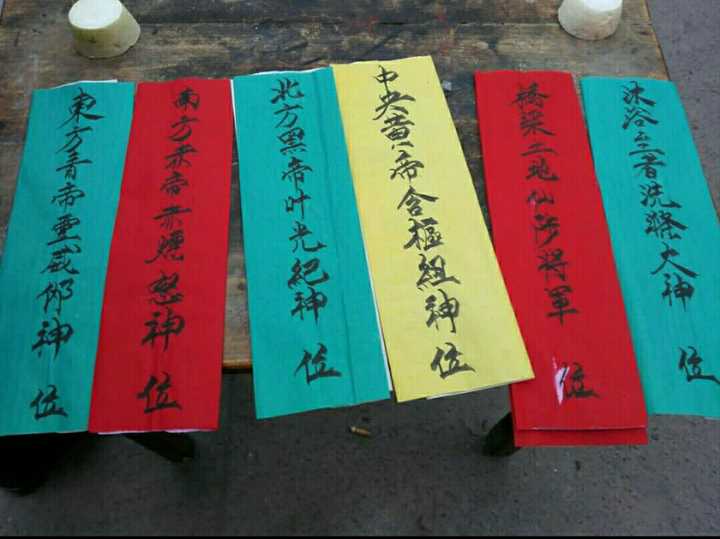 東方青帝靈威仰神位
南方赤帝赤熛怒神位
北方黑帝叶光紀神位
中央黃帝含極組神位
橋梁土地仙涉將軍位
沐浴者洗滌大神位